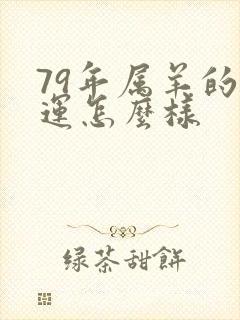 79年属羊的
運怎麼樣
绿茶甜餅